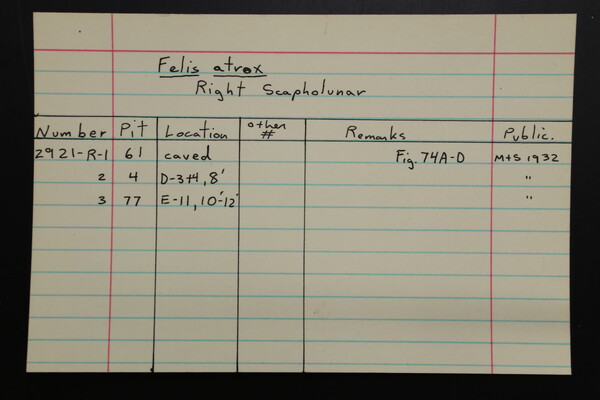 Felis atrox
Right Scapholunar
Number Pit Location other # Remarks Public.
2921-R-1 61 caved Fig. 74A-D M+S 1932
2 4 D-3+4, 8' "
3 77 E-11, 10'-12' "